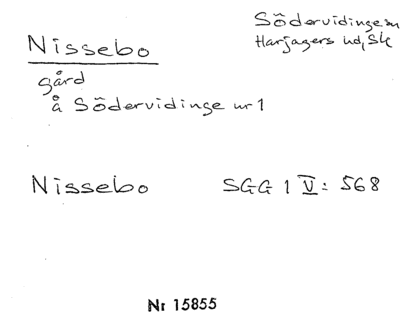 Nissebo
Södervidinge sn
Harjagers hd, Sk
gård
å Södervidinge nr 1
Nissebo SGG 1 V: 568
Nr 15855